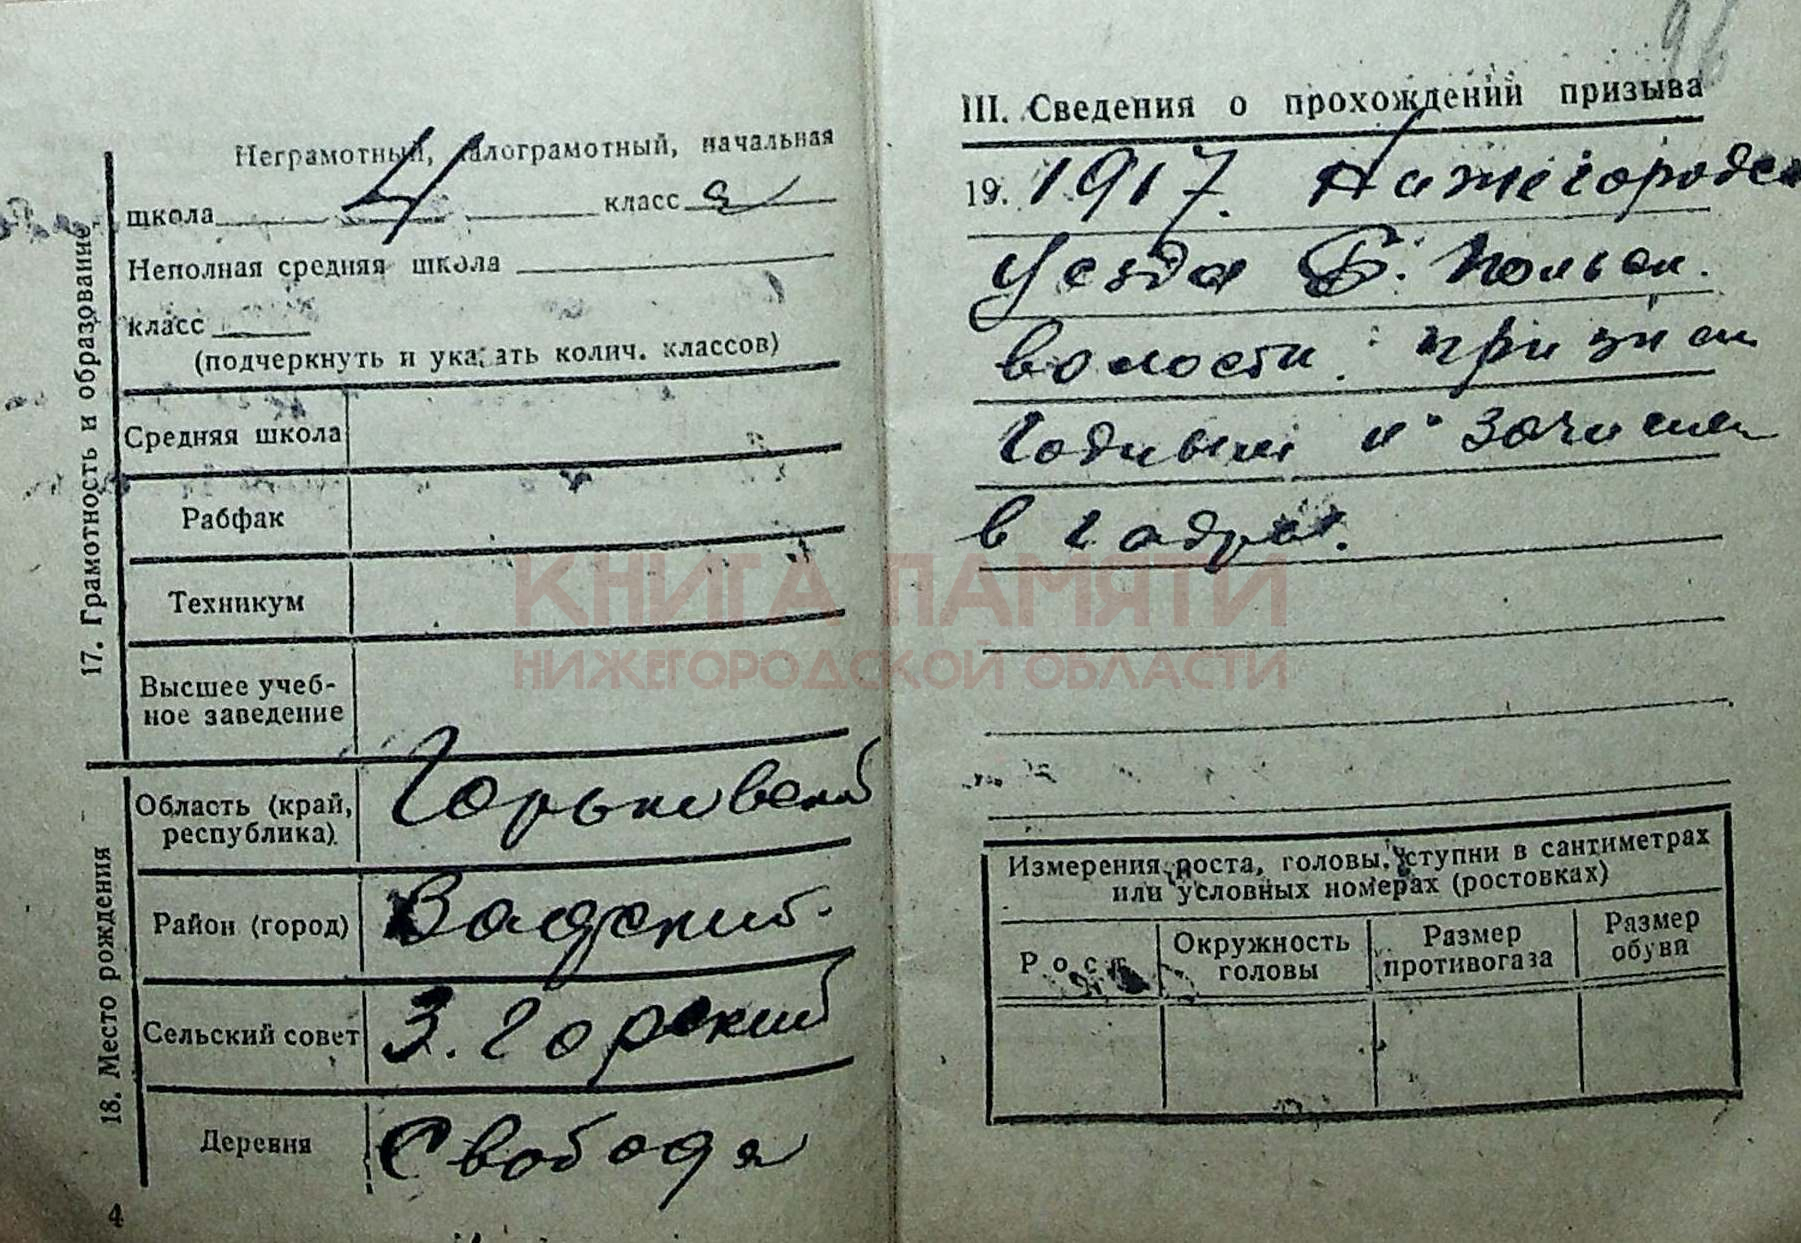 Неграмотный, малограмотный, начальная
школа 4 класса
Неполная средняя школа
класс
(подчеркнуть и указать колич. классов)
17. Грамотность и образование
Средняя школа
Рабфак
Техникум
Высшее учеб-
ное заведение
18. Место рождения
Область (край,
республика)
Горьковской
Район (город)
Вадский
Сельский совет
З. горский
Деревня
Свобода
4
96
III. Сведения о прохождении призыва
19. 1917. Нижегородск
уезда Б.
волости признан
годным и зачислен
в кадры.
Измерения роста, головы, ступни в сантиметрах
или условных номерах (ростовках)
Рост
Окружность
головы
Размер
противогаза
Размер
обуви
КНИГА ПАМЯТИ
НИЖЕГОРОДСКОЙ ОБЛАСТИ